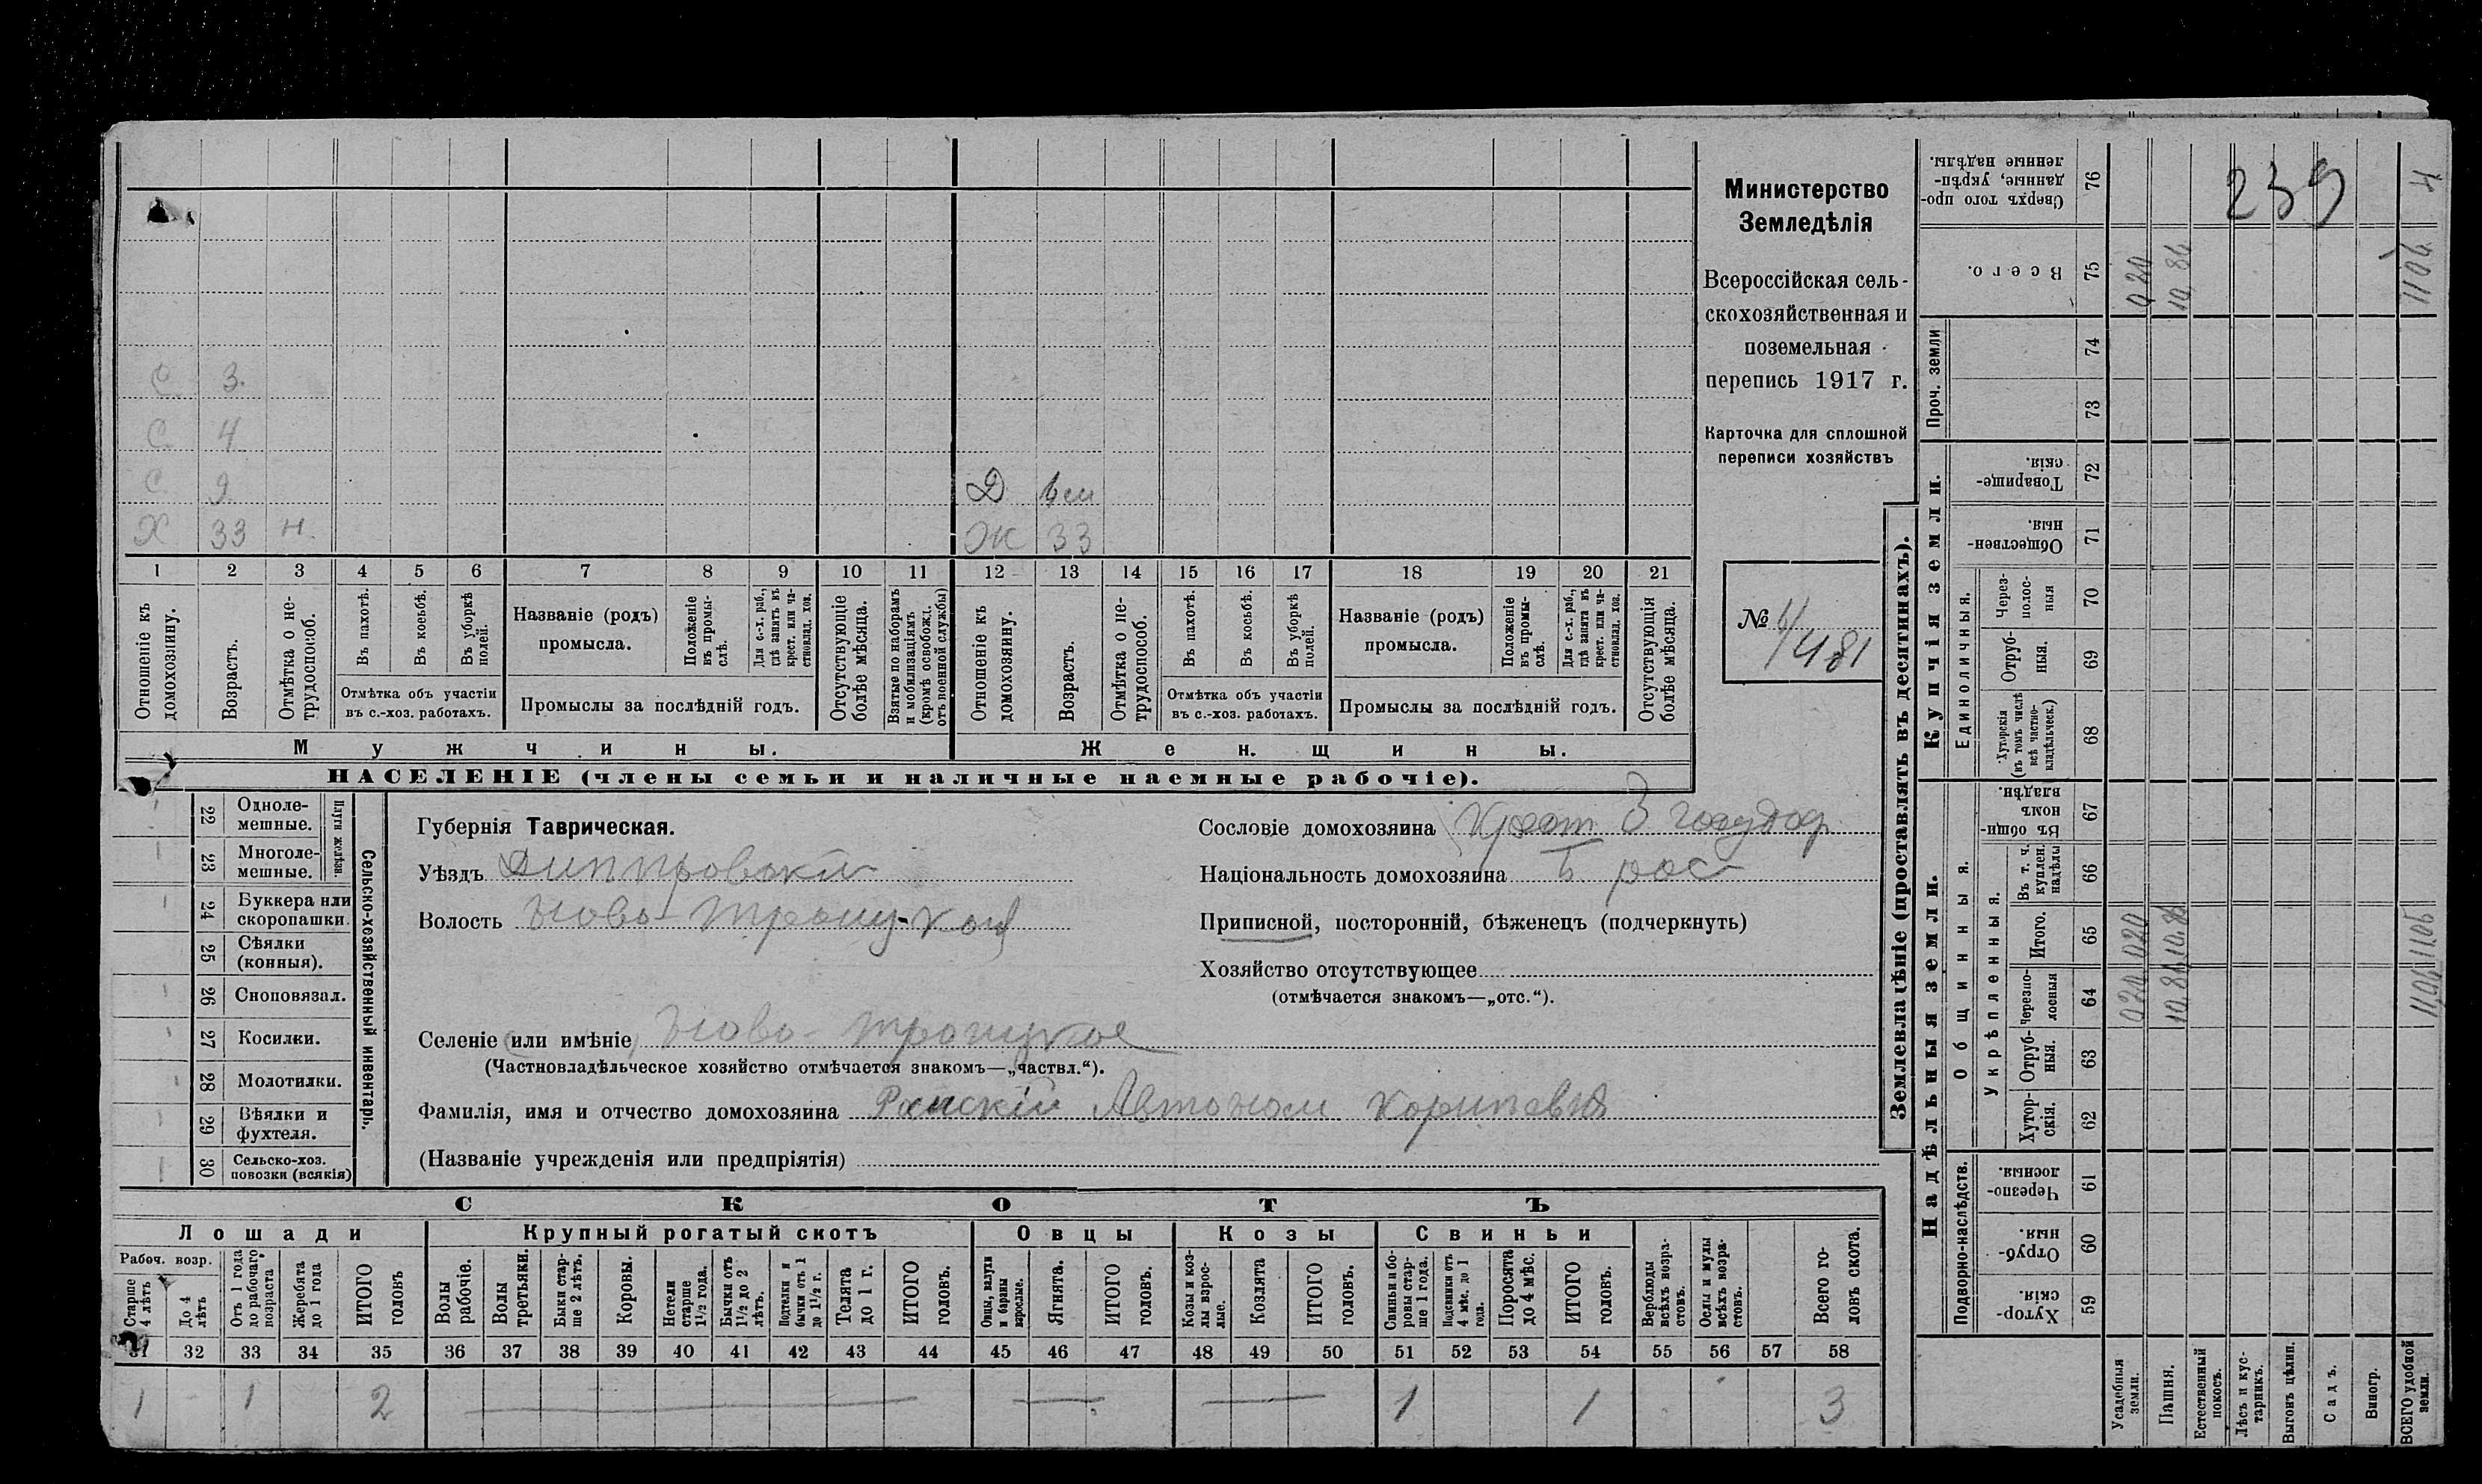 С 3.
С 4
С 9 Д 6 м
Х 33 н. Ж 33
1 2 3 4 5 6 7 8 9 10 11 12 13 14 15 16 17 18 19 20 21
Отношеніе къ домохозяину.
Возрастъ.
Отмѣтка о не-трудоспособ.
Въ пахотѣ.
Въ косьбѣ.
Въ уборкѣ полей.
Отмѣтка объ участіи
въ с.-хоз. работахъ.
Названіе (родъ)
промысла.
Положеніе въ промы-слѣ.
Для с.-х. раб., гдѣ занятъ въ крест. или ча-стновлад. хоз.
Промыслы за послѣдній годъ.
Отсутствующіе болѣе мѣсяца.
Взятые по наборамъ и мобилизаціямъ (кромѣ освобожд. отъ военной службы)
Отношеніе къ домохозяину.
Возрастъ.
Отмѣтка о не-трудоспособ.
Въ пахотѣ.
Въ косьбѣ.
Въ уборкѣ полей.
Отмѣтка объ участіи
въ с.-хоз. работахъ.
Названіе (родъ)
промысла.
Положеніе въ промы-слѣ.
Для с.-х. раб., гдѣ занята въ крест. или ча-стновлад. хоз.
Промыслы за послѣдній годъ.
Отсутствующія болѣе мѣсяца.
Мужчины. Женщины.
НАСЕЛЕНІЕ (члены семьи и наличные наемные рабочіе).
Министерство
Земледѣлія
Всероссійская сель-
скохозяйственная и
поземельная
перепись 1917 г.
Карточка для сплошной
переписи хозяйствъ
№ 6/481
22 Одноле-мешные.
23 Многоле-мешные.
Плуги желѣзн.
24 Буккера или скоропашки.
25 Сѣялки (конныя).
26 Сноповязал.
27 Косилки.
28 Молотилки.
29 Вѣялки и фухтеля.
30 Сельско-хоз. повозки (всякія)
Сельско-хозяйственный инвентарь.
Губернія Таврическая.
Уѣздъ Днипровски
Волость Ново-Троиц-кой
Селеніе (или имѣніе) Ново Троицкое
(Частновладѣльческое хозяйство отмѣчается знакомъ—„частвл.“).
Фамилія, имя и отчество домохозяина Автоном
(Названіе учрежденія или предпріятія)
Сословіе домохозяина Крест
Національность домохозяина рос
Приписной, посторонній, бѣженецъ (подчеркнуть)
Хозяйство отсутствующее
(отмѣчается знакомъ—„отс.“).
СКОТЪ
Лошади Крупный рогатый скотъ Овцы Козы Свиньи
Рабоч. возр.
Старше 4 лѣтъ
До 4 лѣтъ
Отъ 1 года до рабочаго возраста
Жеребята до 1 года
ИТОГО головъ
Волы рабочіе.
Волы третьяки.
Быки стар-ше 2 лѣтъ.
Коровы.
Нетели старше 1½ года.
Бычки отъ 1½ до 2 лѣтъ.
Подтелки и бычки отъ 1 до 1½ г.
Телята до 1 г.
ИТОГО головъ.
Овцы, валухи и бараны взрослые.
Ягнята.
ИТОГО головъ.
Козы и коз-лы взрос-лые.
Козлята
ИТОГО головъ.
Свиньи и бо-ровы стар-ше 1 года.
Подсвинки отъ 4 мѣс. до 1 года.
Поросята до 4 мѣс.
ИТОГО головъ.
Верблюды всѣхъ возра-стовъ.
Ослы и мулы всѣхъ возра-стовъ.
Всего го-ловъ скота.
31 32 33 34 35 36 37 38 39 40 41 42 43 44 45 46 47 48 49 50 51 52 53 54 55 56 57 58
1 - 1 2 1 1 3
Землевладѣніе (проставлять въ десятинахъ).
Надѣльныя земли. Купчія земли. Проч. земли
Подворно-наслѣдств.
Общинныя.
Укрѣпленныя.
Единоличныя.
Сверхъ того про-данные, укрѣп-ленные надѣлы. 76
Всего. 75
74
73
Товарище-скія. 72
Обществен-ныя. 71
Через-полос-ныя 70
Отруб-ныя. 69
Хуторскія (въ томъ числѣ всѣ частно-владѣльческ.) 68
Въ общи-номъ владѣн. 67
Въ т. ч. куплен. надѣлы 66
Итого. 65
Черезпо-лосныя 64
Отруб-ныя. 63
Хутор-скія. 62
Черезпо-лосныя. 61
Отруб-ныя. 60
Хутор-скія. 59
Усадебныя земли.
Пашня.
Естественный покосъ.
Лѣсъ и кус-тарникъ.
Выгонъ цѣлин.
Садъ.
Виногр.
ВСЕГО удобной земли.
0.20 0.20 0.20
10.86 10.86 10.86
11.06 11.06 11.06
239
4